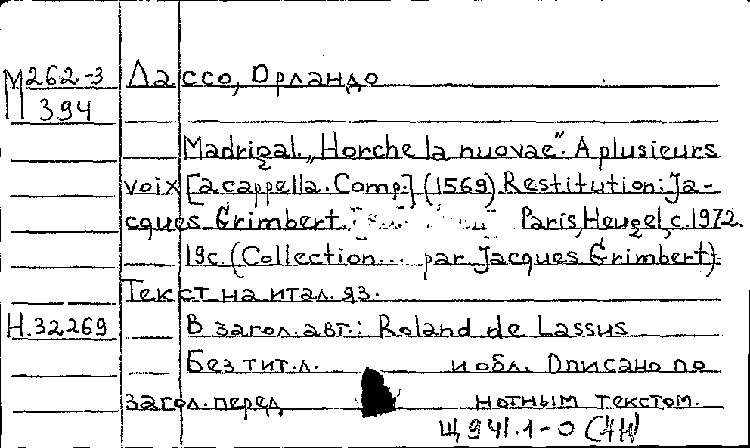 М262-3
394
Лассо, Орландо
Madrigal „Horche la nuovae". A plusieurs
voix [a cappella. Comp.] (1569) Restitution: Ja-
cques Grimbert. Paris, Heugel, c. 1972.
19с. (Collection... par Jacques Grimbert).
Текст на итал. яз.
Н.32269 В загол. авт.: Roland de Lassus
Без тит. л. и обл. Описано по
загол. перед нотным текстом.
Щ941.1-0 (4И)